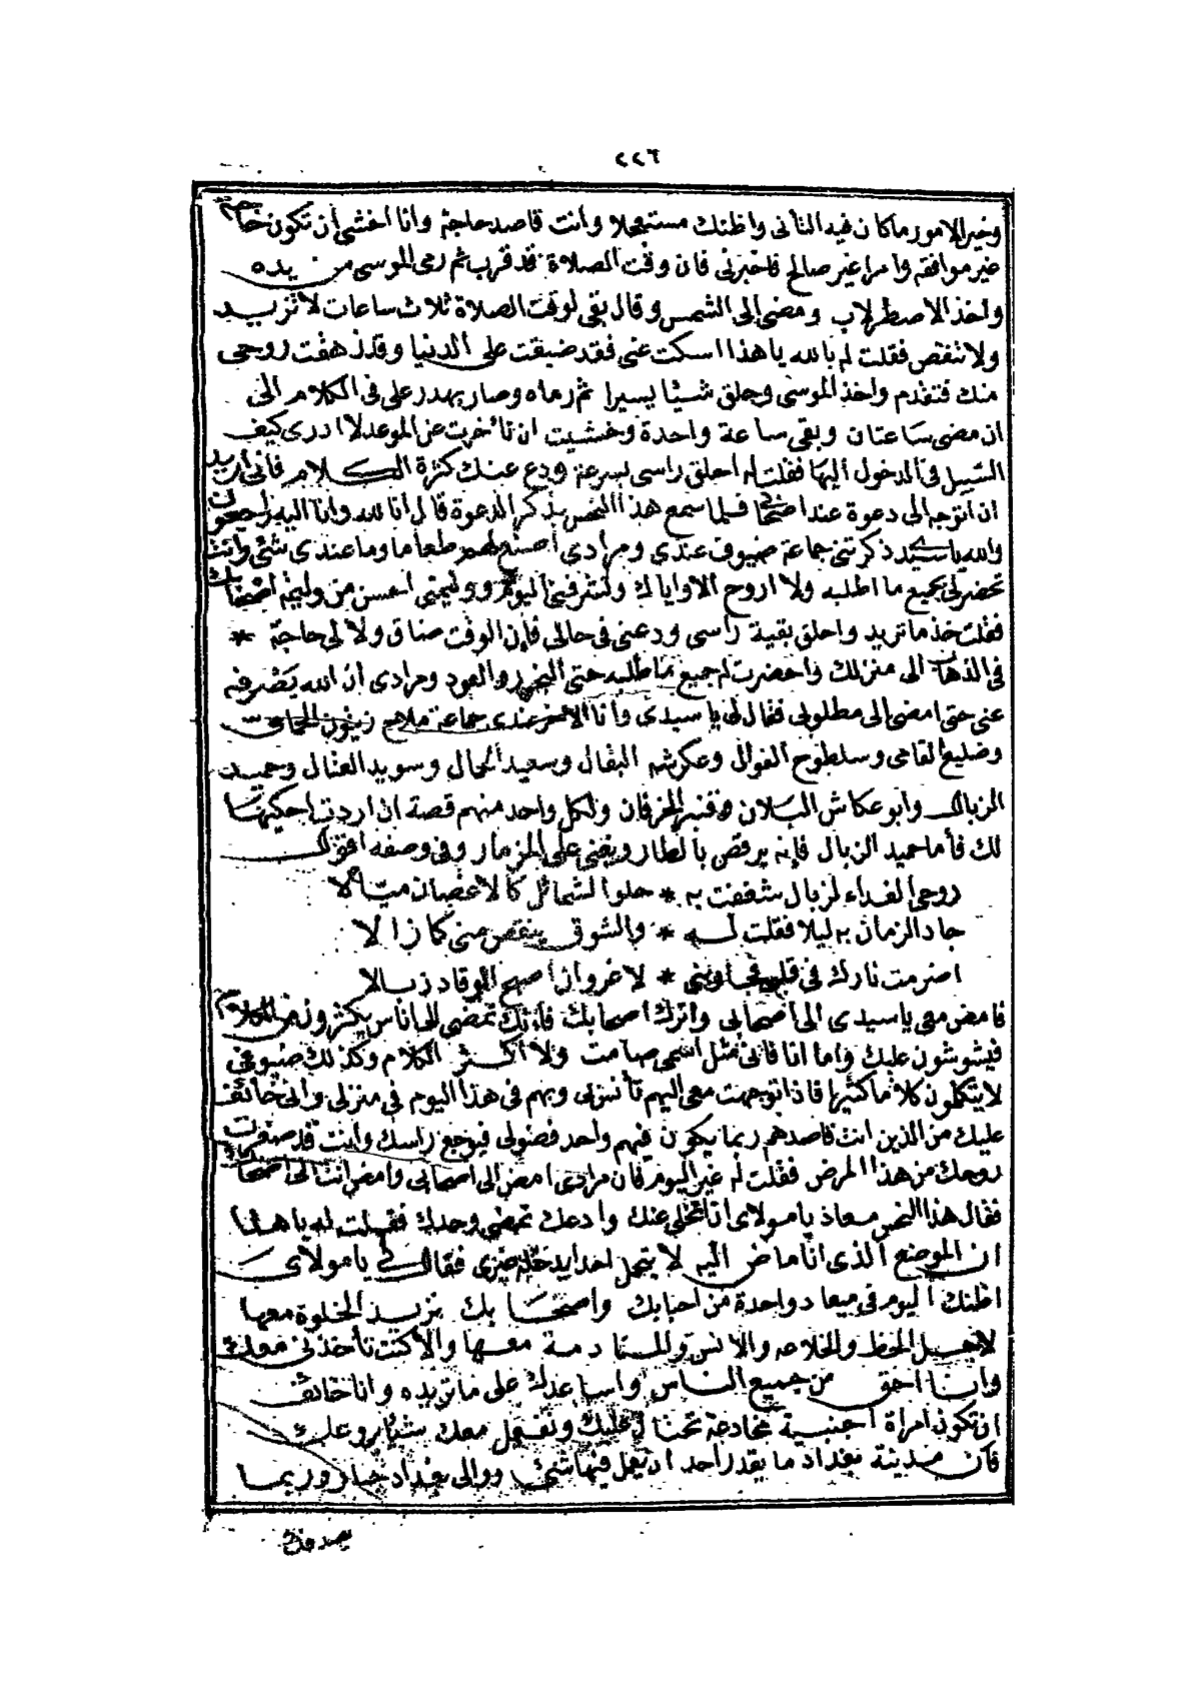 ٢٢٦
وخير الامور ما كان فيه التأنى واظنك مستعجلا وأنت قاصد حاجة وانا اخشى أن تكون
غير موافقه وامرا غير صالح فاخبرنى فان وقت الصلاة قد قرب ثم رمى الموسى من يده
واخذ الاصطرلاب ومضى الى الشمس وقال بقى لوقت الصلاة ثلاث ساعات لا تزيد
ولا تنقص فقلت له بالله يا هذا اسكت عنى فقد ضيقت على الدنيا وقد زهقت روحى
منك فتقدم واخذ الموسى وحلق شيئا يسيرا ثم رماه وصار يهدر على فى الكلام الى
ان مضى ساعتان وبقى ساعة واحدة وخشيت ان تأخرت عن الموعد لا ادرى كيف
السبيل فى الدخول اليها فقلت له احلق راسى بسرعة ودع عنك كثرة الكلام فانى اريد
ان اتوجه الى دعوة عند اصحابى فلما سمع هذا النحس بذكر الدعوة قال انا لله وانا اليه راجعون
والله يا سيدى ذكرتنى جماعة ضيوف عندى ومرادى اصنع لهم طعاما وما عندى شئ وانت
تحضر لى جميع ما اطلبه ولا اروح الا واياك وتشرفنى اليوم ووليمتى احسن من وليمة اصحابك
فقلت خذ ما تريد واحلق بقية راسى ودعنى فى حالى فإن الوقت ضاق ولا لى حاجة *
فى الذهاب الى منزلك واحضرت له جميع ما طلبه حتى البخور والعود ومرادى ان الله يصرفه
عنى حتى امضى الى مطلوبى فقال لى يا سيدى وانا الاخر عندى جماعة ملاح زيتون الحمامى
وضليع القامى وسلطوح الفوال وعكرشه البقال وسعيد الجمال وسويد العتال وحميد
الزبال وابو عكاش البلان وقنبر الخرفان ولكل واحد منهم قصة ان اردت احكيها
لك فأما حميد الزبال فإنه يرقص بالطار ويغنى على المزمار وفى وصفه اقول
روحى الفداء لزبال شغفت به * حلو الشمائل كالاغصان ميالا
جاد الزمان به ليلا فقلت له * والشوق ينقص منى كلما زالا
اضرمت نارك فى قلبى فجاوبنى * لا غرو ان اصبح الوقاد زبالا
فامض معى يا سيدى الى اصحابى واترك اصحابك فانك تمضى الى اناس يكثرون من الكلام
فيشوشون عليك واما انا فانى مثل اسمى صامت ولا اكثر الكلام وكذلك ضيوفى
لا يتكلمون كلاما كثيرا فاذا توجهت معى اليهم تأنس لى وبهم فى هذا اليوم فى منزلى وانى خائف
عليك من الذين انت قاصدهم ربما يكون فيهم واحد فضولى فيوجع راسك وانت قد صغرت
روحك من هذا المرض فقلت له غير اليوم فان مرادى امض الى اصحابى وامض انت الى اصحابك
فقال هذا النحس معاذ يا مولاى انا اتخلى عنك وادعك تمضى وحدك فقلت له يا هذا
ان الموضع الذى انا ماض اليه لا يتحمل احد ايدخله غيرى فقال لى يا مولاى
اظنك اليوم فى ميعاد واحدة من احبابك واصحابك تريد الخلوة معها
لاجل الحظ والخلاعه والانس والمنادمة معها والا كنت تأخذنى معك
وانا احق من جميع الناس واساعدك على ما تريده وانا خائف
ان تكون امراة اجنبية مخادعة تحتال عليك وتفعل معك شيئا يروعك
فان مدينة بغداد ما يقدر احد ان يعمل فيها شئ ووالى بغداد جبار وربما